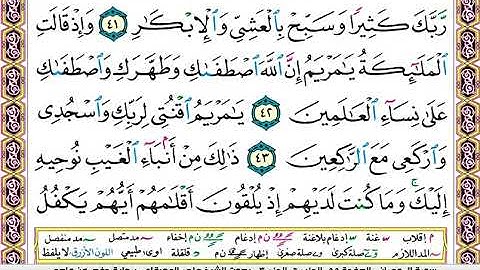 رَّبَّكَ كَثِيرًا وَسَبِّحْ بِٱلْعَشِىِّ وَٱلْإِبْكَٰرِ ٤١ وَإِذْ قَالَتِ
ٱلْمَلَٰٓئِكَةُ يَٰمَرْيَمُ إِنَّ ٱللَّهَ ٱصْطَفَىٰكِ وَطَهَّرَكِ وَٱصْطَفَىٰكِ
عَلَىٰ نِسَآءِ ٱلْعَٰلَمِينَ ٤٢ يَٰمَرْيَمُ ٱقْنُتِى لِرَبِّكِ وَٱسْجُدِى
وَٱرْكَعِى مَعَ ٱلرَّٰكِعِينَ ٤٣ ذَٰلِكَ مِنْ أَنۢبَآءِ ٱلْغَيْبِ نُوحِيهِ
إِلَيْكَ ۚ وَمَا كُنتَ لَدَيْهِمْ إِذْ يُلْقُونَ أَقْلَٰمَهُمْ أَيُّهُمْ يَكْفُلُ
م إقلاب غنة إدغام بلاغنة إدغام إخفاء مد متصل مد منفصل
المد اللازم صلة كبرى صلة صغرى إظهار قلقلة اوى طبيعي اللون الأزرق لا يلفظ